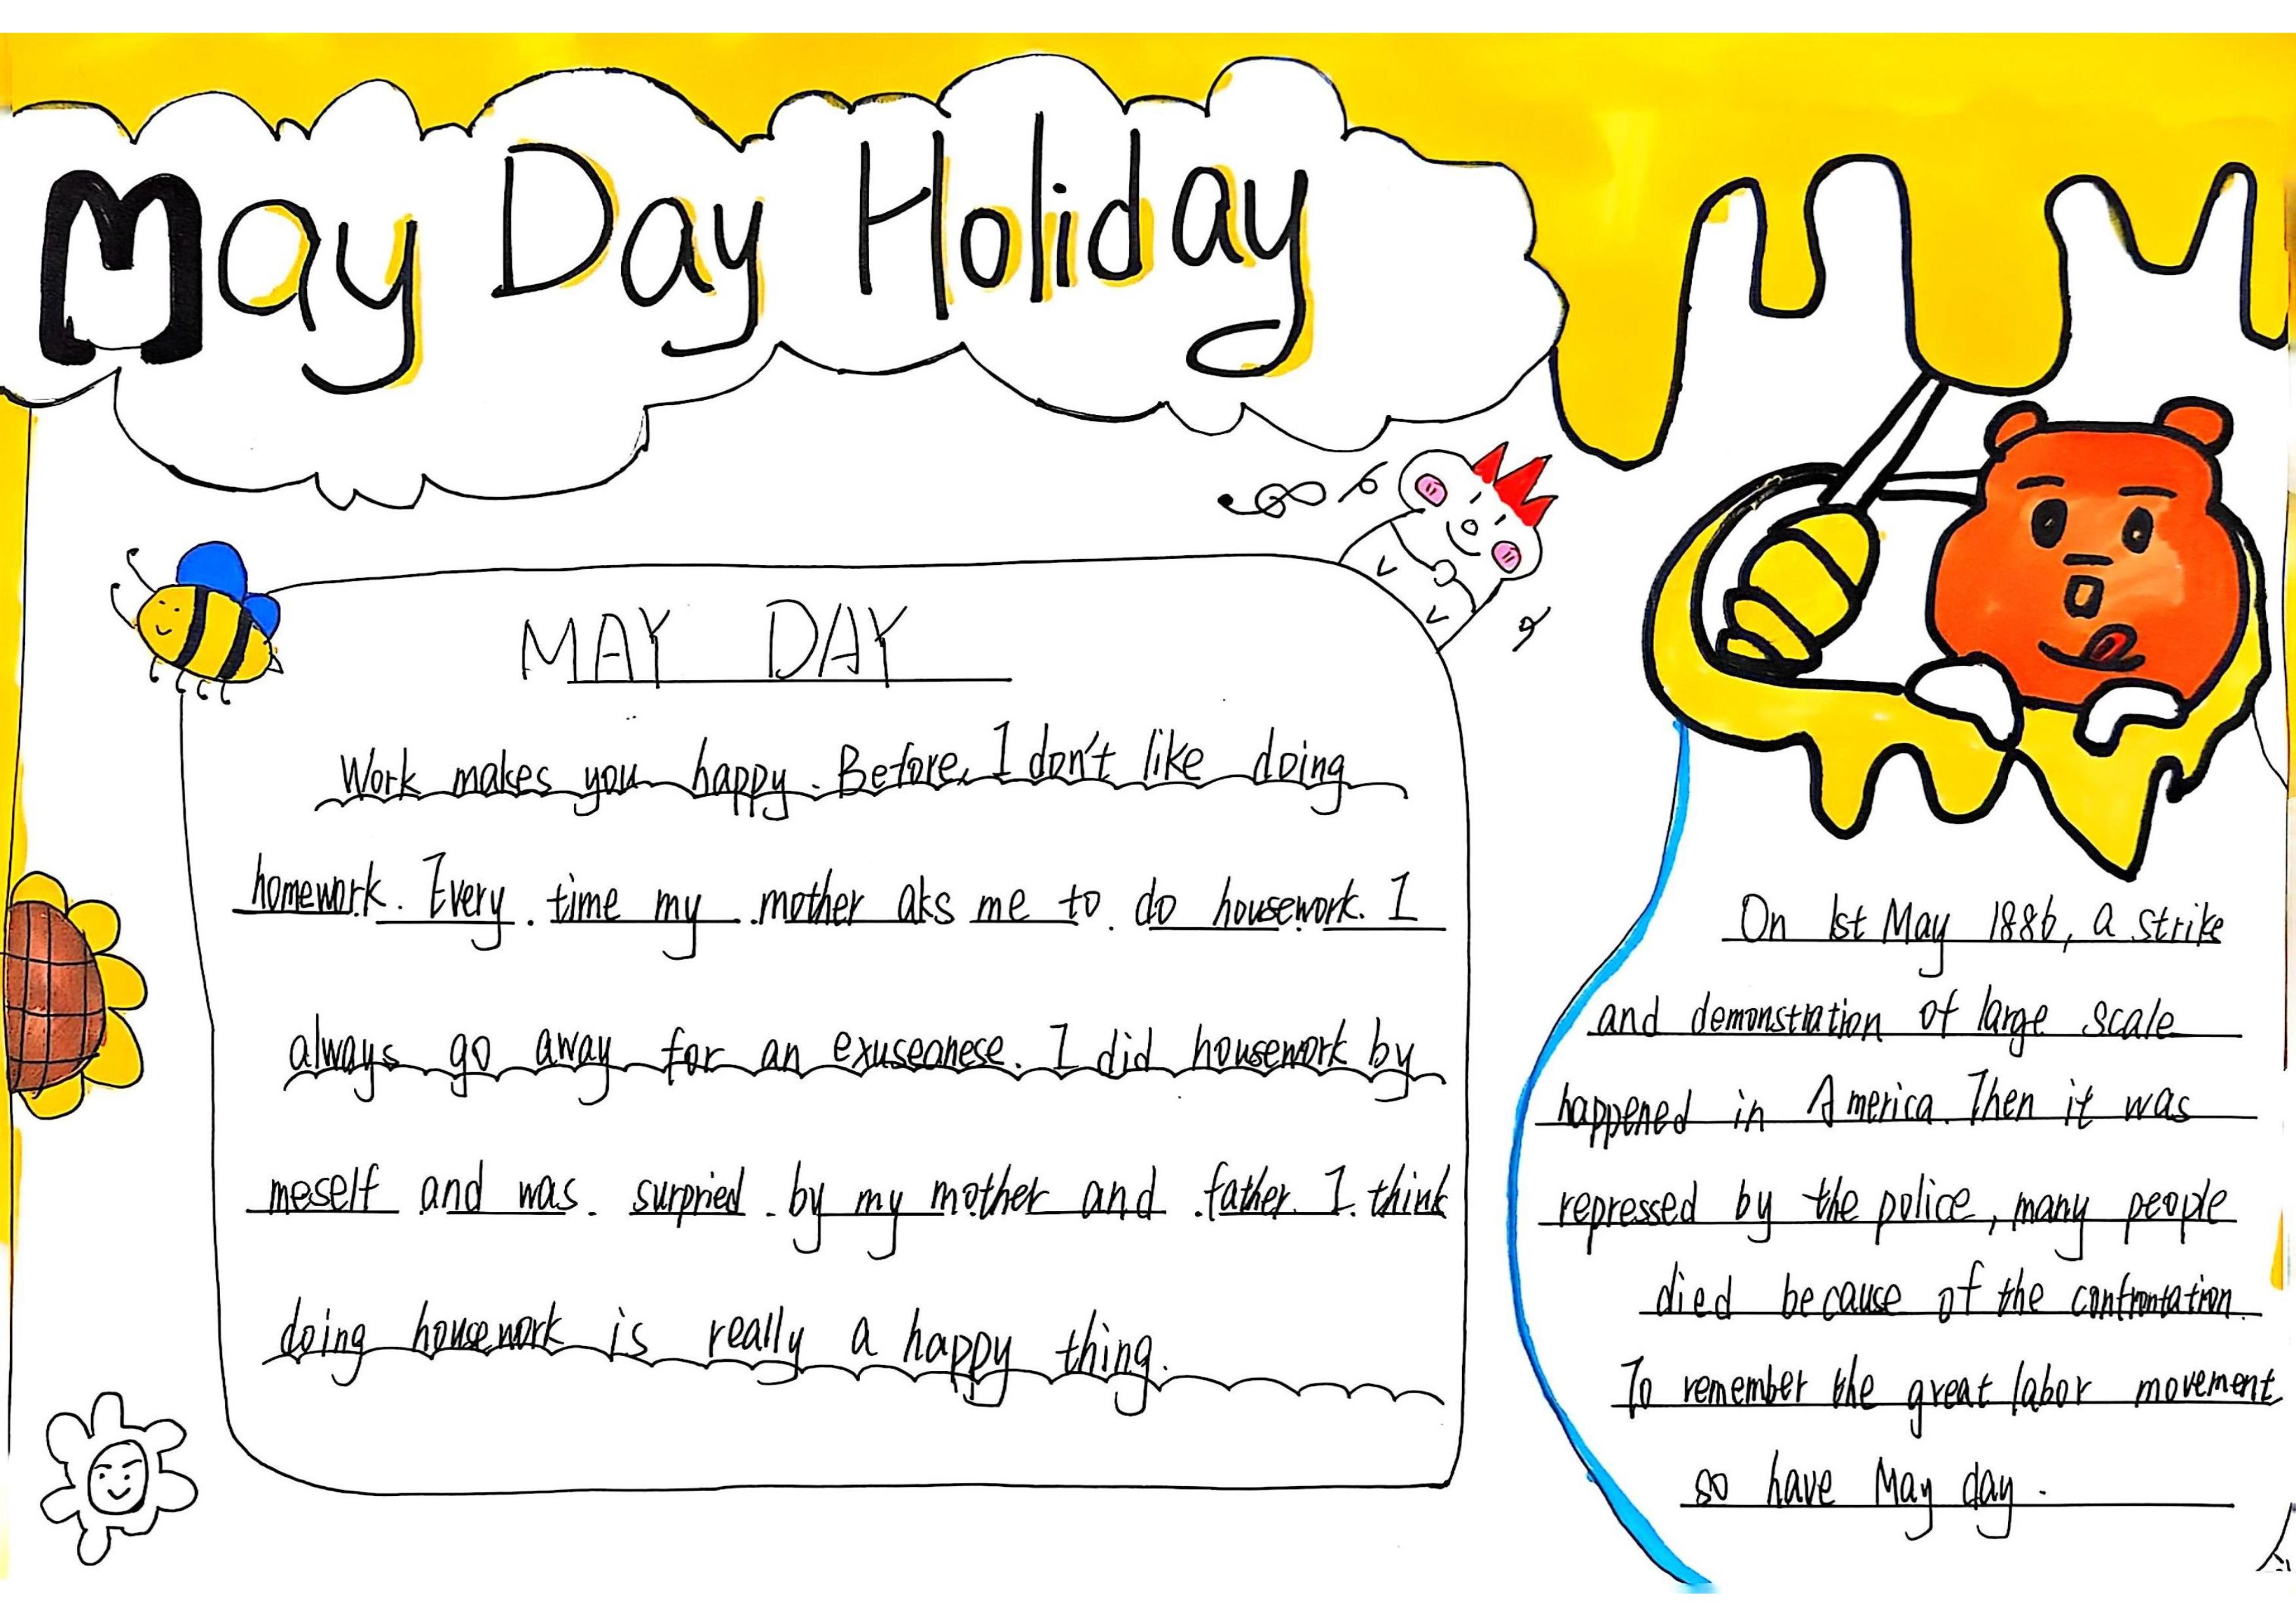 May Day Holiday
MAY DAY
Work makes you happy. Before, I don't like doing
homework. Every time my mother aks me to do housework. I
always go away for an exuseanese. I did housework by
meself and was surpried by my mother and father. I think
doing housework is really a happy thing.
On 1st May 1886, a strike
and demonstration of large scale
happened in America. Then it was
repressed by the police, many people
died because of the confrontation.
To remember the great labor movement
so have May day.